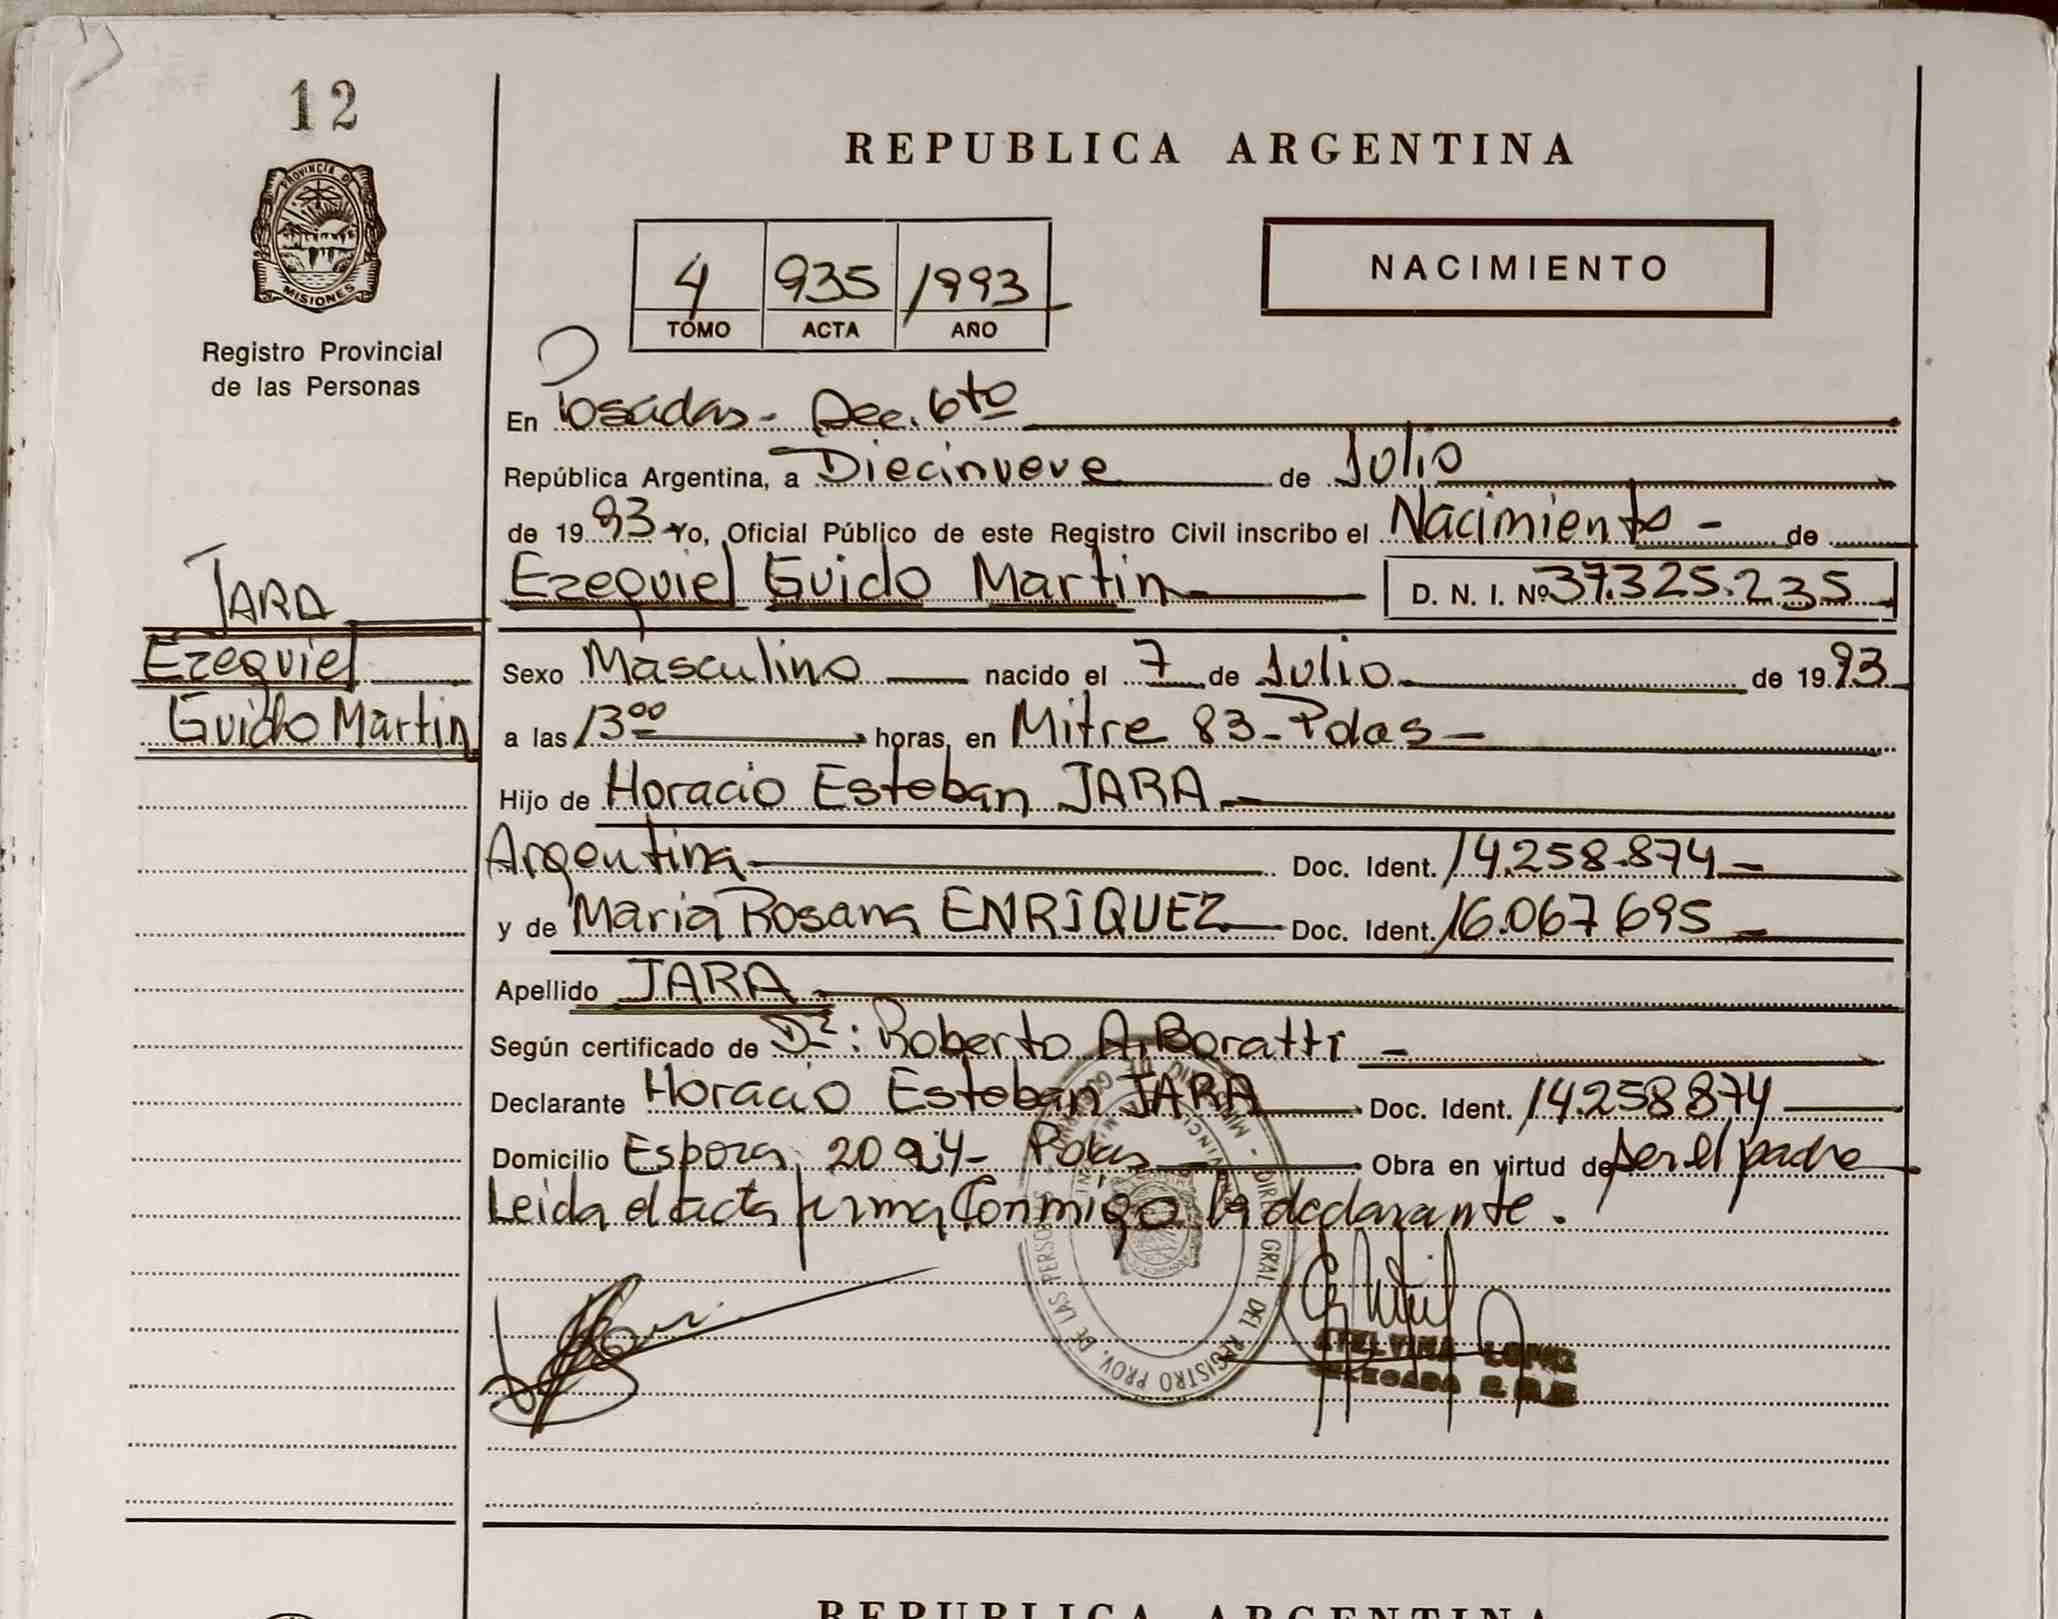 12
PROVINCIA DE
MISIONES
Registro Provincial
de las Personas
REPUBLICA ARGENTINA
4 935 1993
TOMO ACTA AÑO
NACIMIENTO
En Posadas - Secc. 6to
República Argentina, a Diecinueve de Julio
de 1993 Yo, Oficial Público de este Registro Civil inscribo el Nacimiento - de
Ezequiel Guido Martin D. N. I. Nº 37.325.235
JARA
Ezequiel
Guido Martin
Sexo Masculino nacido el 7 de Julio de 1993
a las 13 00 horas, en Mitre 83 - Pdas -
Hijo de Horacio Esteban JARA
Argentina Doc. Ident. 14.258.874
y de Maria Rosana ENRIQUEZ Doc. Ident. 16.067 695
Apellido JARA
Según certificado de Dr: Roberto A. Boratti -
Declarante Horacio Esteban JARA Doc. Ident. 14.258 874
Domicilio Espora Pdas Obra en virtud de ser el padre
Leida el acta firma Conmigo la declarante.
DIR. GRAL. DEL REGISTRO PROV. DE LAS PERSONAS
LOPEZ
REPUBLICA ARGENTINA